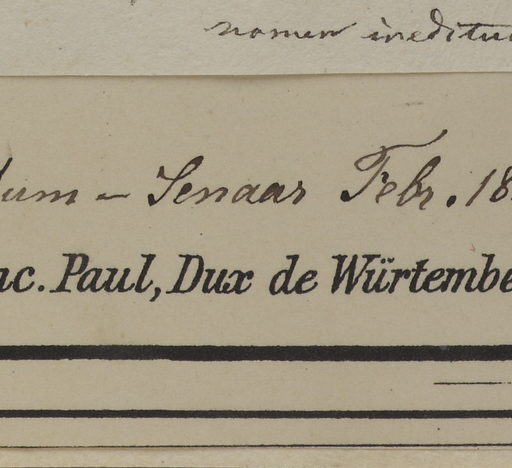 nomen ineditu
dum – Senaar Febr. 18
ac. Paul, Dux de Würtembe